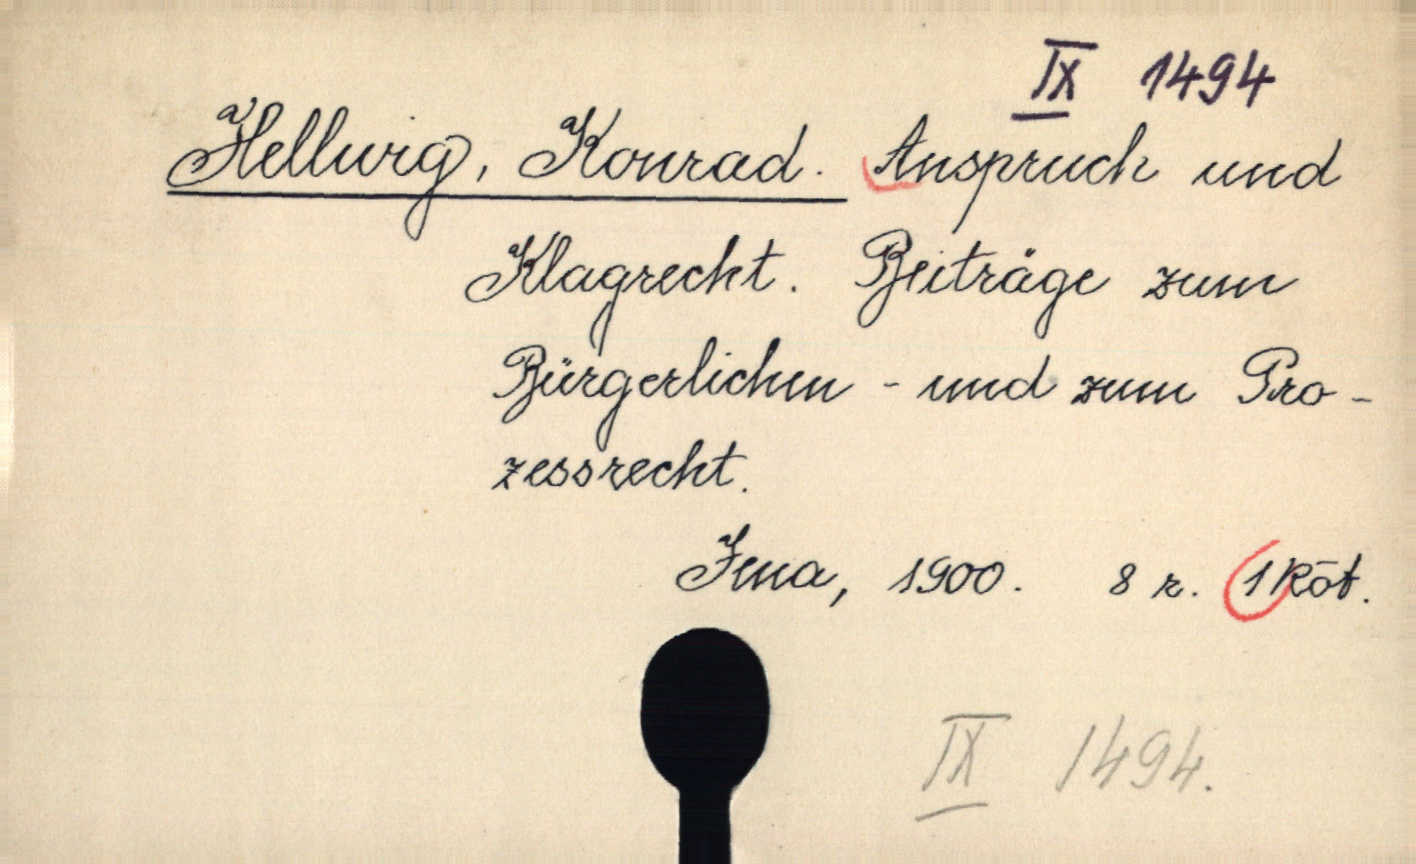 IX 1494
Hellwig, Konrad. Anspruch und
Klagrecht. Beiträge zum
Bürgerlichen - und zum Pro-
zessrecht.
Jena, 1900. 8 r. 1 köt.
IX 1494.